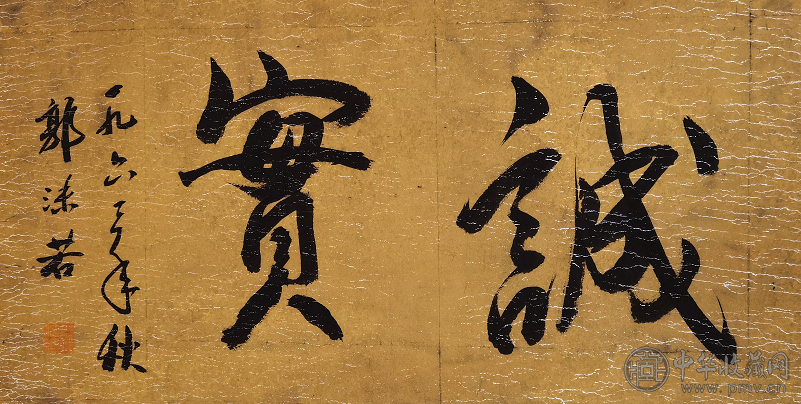 誠實
一九六三年秋
郭沫若
中华收藏网
www.pmv.cn